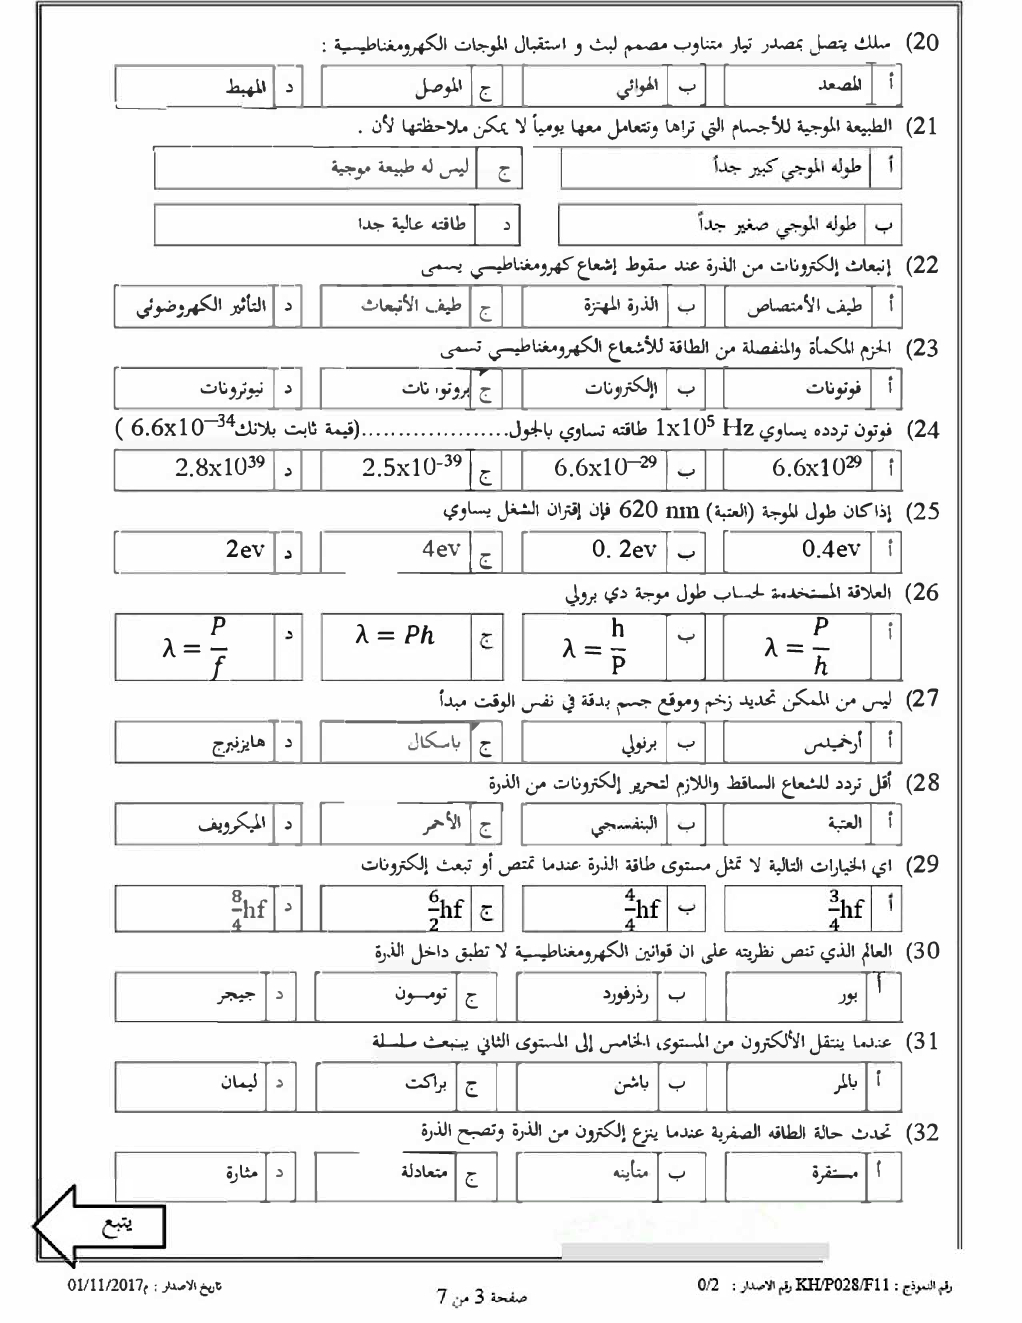 20) سلك يتصل بمصدر تيار متناوب مصمم لبث و استقبال الموجات الكهرومغناطيسية :
أ المصعد ب الهوائي ج الموصل د المهبط
21) الطبيعة الموجية للأجسام التي تراها وتتعامل معها يومياً لا يمكن ملاحظتها لأن .
أ طوله الموجي كبير جداً ج ليس له طبيعة موجية
ب طوله الموجي صغير جداً د طاقته عالية جدا
22) إنبعاث إلكترونات من الذرة عند سقوط إشعاع كهرومغناطيسي يسمى
أ طيف الأمتصاص ب الذرة المهتزة ج طيف الأنبعاث د التأثير الكهروضوئي
23) الحزم المكمأة والمنفصلة من الطاقة للأشعاع الكهرومغناطيسي تسمى
أ فوتونات ب اإلكترونات ج بروتونات د نيوترونات
24) فوتون تردده يساوي 1x10⁵ Hz طاقته تساوي بالجول....................(قيمة ثابت بلانك 6.6x10⁻³⁴ )
أ 6.6x10²⁹ ب 6.6x10⁻²⁹ ج 2.5x10⁻³⁹ د 2.8x10³⁹
25) إذا كان طول الموجة (العتبة) 620 nm فإن إقتران الشغل يساوي
أ 0.4ev ب 0. 2ev ج 4ev د 2ev
26) العلاقة المستخدمة لحساب طول موجة دي برولي
أ λ = P/h ب λ = h/P ج λ = Ph د λ = P/f
27) ليس من الممكن تحديد زخم وموقع جسم بدقة في نفس الوقت مبدأ
أ أرخميدس ب برنولي ج باسكال د هايزنبرج
28) أقل تردد للشعاع الساقط واللازم لتحرير إلكترونات من الذرة
أ العتبة ب البنفسجي ج الأحمر د الميكرويف
29) اي الخيارات التالية لا تمثل مستوى طاقة الذرة عندما تمتص أو تبعث إلكترونات
أ 3/4 hf ب 4/4 hf ج 6/2 hf د 8/4 hf
30) العالم الذي تنص نظريته على ان قوانين الكهرومغناطيسية لا تطبق داخل الذرة
أ بور ب رذرفورد ج تومسون د جيجر
31) عندما ينتقل الألكترون من المستوى الخامس إلى المستوى الثاني ينبعث سلسلة
أ بالمر ب باشن ج براكت د ليمان
32) تحدث حالة الطاقه الصفرية عندما ينزع إلكترون من الذرة وتصبح الذرة
أ مستقرة ب متأينه ج متعادلة د مثارة
يتبع
رقم النموذج : KH/P028/F11 رقم الاصدار : 0/2 تاريخ الاصدار : م01/11/2017
صفحة 3 من 7